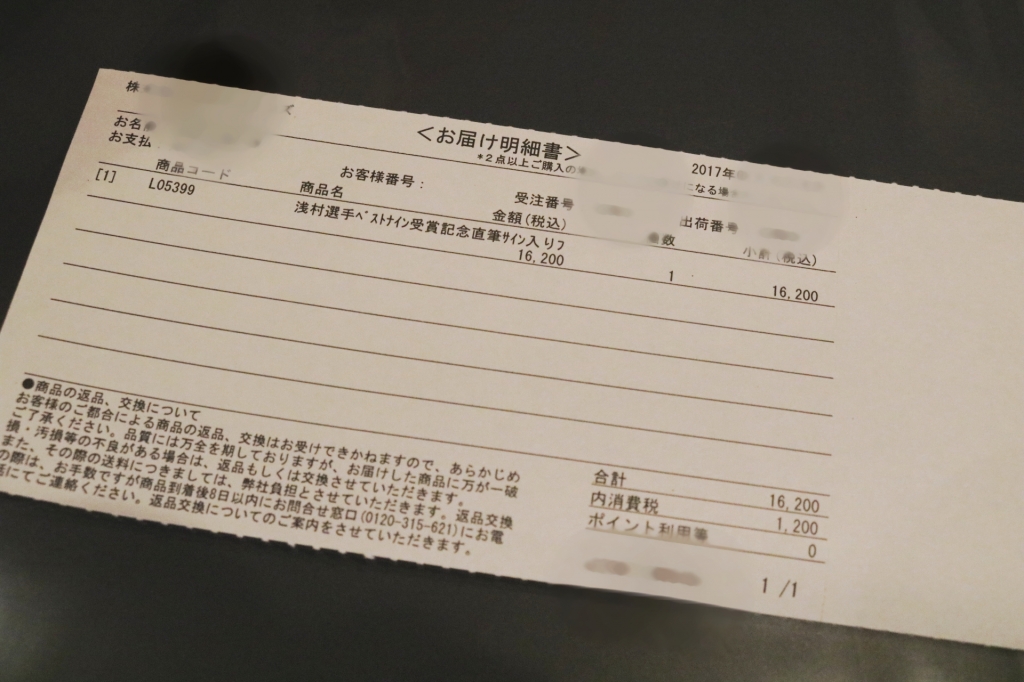 株
<お届け明細書>
お名
2017年
お支払
*2点以上ご購入の
になる場
お客様番号：
受注番号
出荷番号
商品コード
商品名
金額(税込)
数
小計(税込)
[1]
L05399
浅村選手ﾍﾞｽﾄﾅｲﾝ受賞記念直筆ｻｲﾝ入りフ
16,200
1
16,200
●商品の返品、交換について
お客様のご都合による商品の返品、交換はお受けできかねますので、あらかじめ
ご了承ください。品質には万全を期しておりますが、お届けした商品に万が一破
損・汚損等の不良がある場合は、返品もしくは交換させていただきます。
また、その際の送料につきましては、弊社負担とさせていただきます。返品交換
の際は、お手数ですが商品到着後8日以内にお問合せ窓口(0120-315-621)にお電
話にてご連絡ください。返品交換についてのご案内をさせていただきます。
合計 16,200
内消費税 1,200
ポイント利用等 0
1 /1